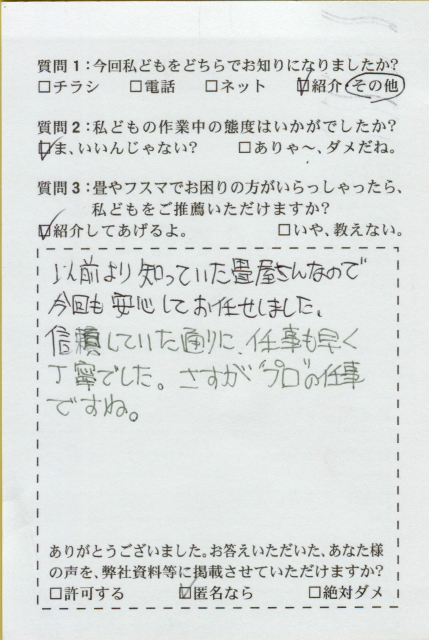 質問1:今回私どもをどちらでお知りになりましたか?
□チラシ □電話 □ネット ☑紹介・その他
質問2:私どもの作業中の態度はいかがでしたか?
☑ま、いいんじゃない? □ありゃ〜、ダメだね。
質問3:畳やフスマでお困りの方がいらっしゃったら、
私どもをご推薦いただけますか?
☑紹介してあげるよ。 □いや、教えない。
以前より知っていた畳屋さんなので
今回も安心してお任せしました。
信頼していた通りに、仕事も早く
丁寧でした。さすが“プロ”の仕事
ですね。
ありがとうございました。お答えいただいた、あなた様
の声を、弊社資料等に掲載させていただけますか?
□許可する ☑匿名なら □絶対ダメ